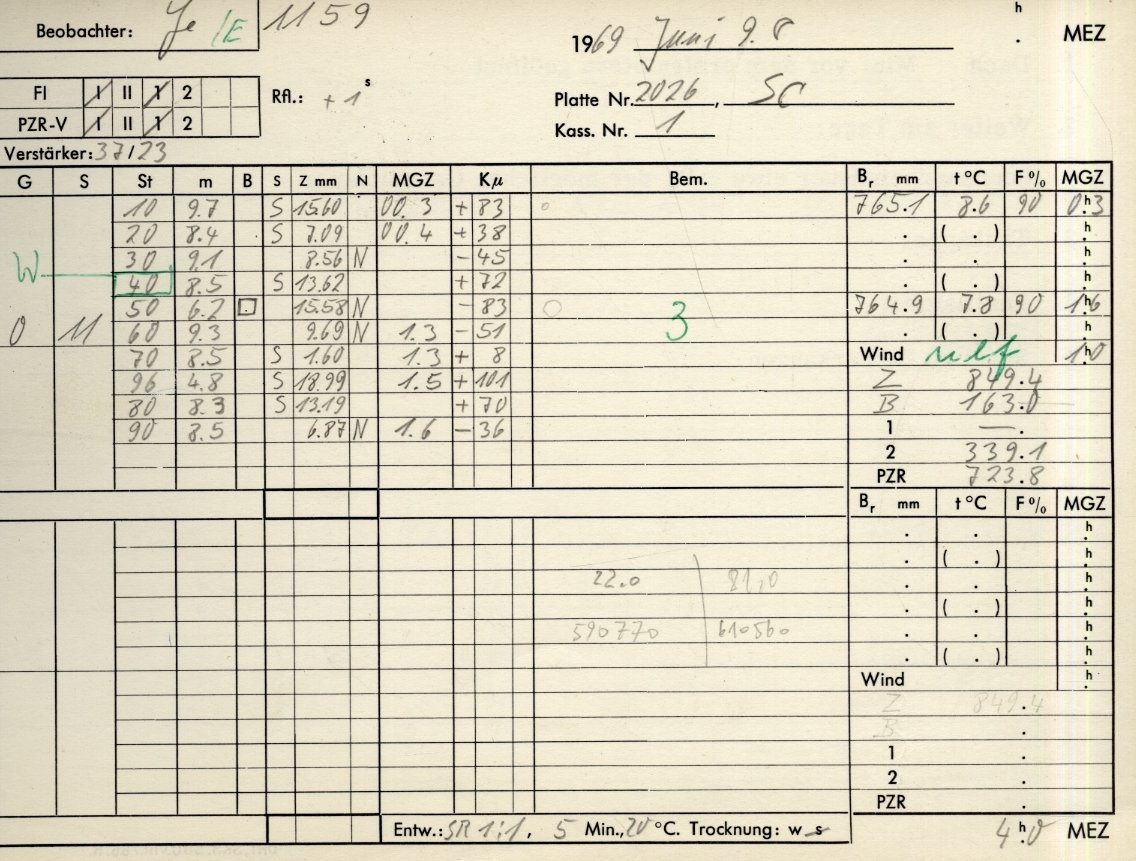 Beobachter: Je /E 1159
h
. MEZ
1969 Juni 9.8
FI I II 1 2
Rfl.: +1 s
Platte Nr. 2026, SC
PZR-V I II 1 2
Kass. Nr. 1
Verstärker: 37/23
G S St m B S Z mm N MGZ Kμ Bem. Br mm t°C F% MGZ
10 9.7 S 15.60 00.3 +83 765.1 8.6 90 0h.3
20 8.4 S 7.09 00.4 +38 . ( . ) h.
30 9.1 8.56 N -45 . . h.
W 40 8.5 S 13.62 +72 . ( . ) h.
50 6.2 □ 15.58 N -83 3 764.9 7.8 90 1h.6
0 11 60 9.3 9.69 N 1.3 -51 . ( . ) h.
70 8.5 S 1.60 1.3 +8 Wind 1h.0
96 4.8 S 18.99 1.5 +101 Z 849.4
80 8.3 S 13.19 +70 B 163.0
90 8.5 6.87 N 1.6 -36 1 —.
2 339.1
PZR 723.8
Br mm t°C F% MGZ
. . h.
. ( . ) h.
22.0 81,0 . . h.
. ( . ) h.
590770 610560 . . h.
. ( . ) h.
Wind h.
Z 849.4
B .
1 .
2 .
PZR .
Entw.: SR 1:1, 5 Min., 20 °C. Trocknung: w s
4h.0 MEZ